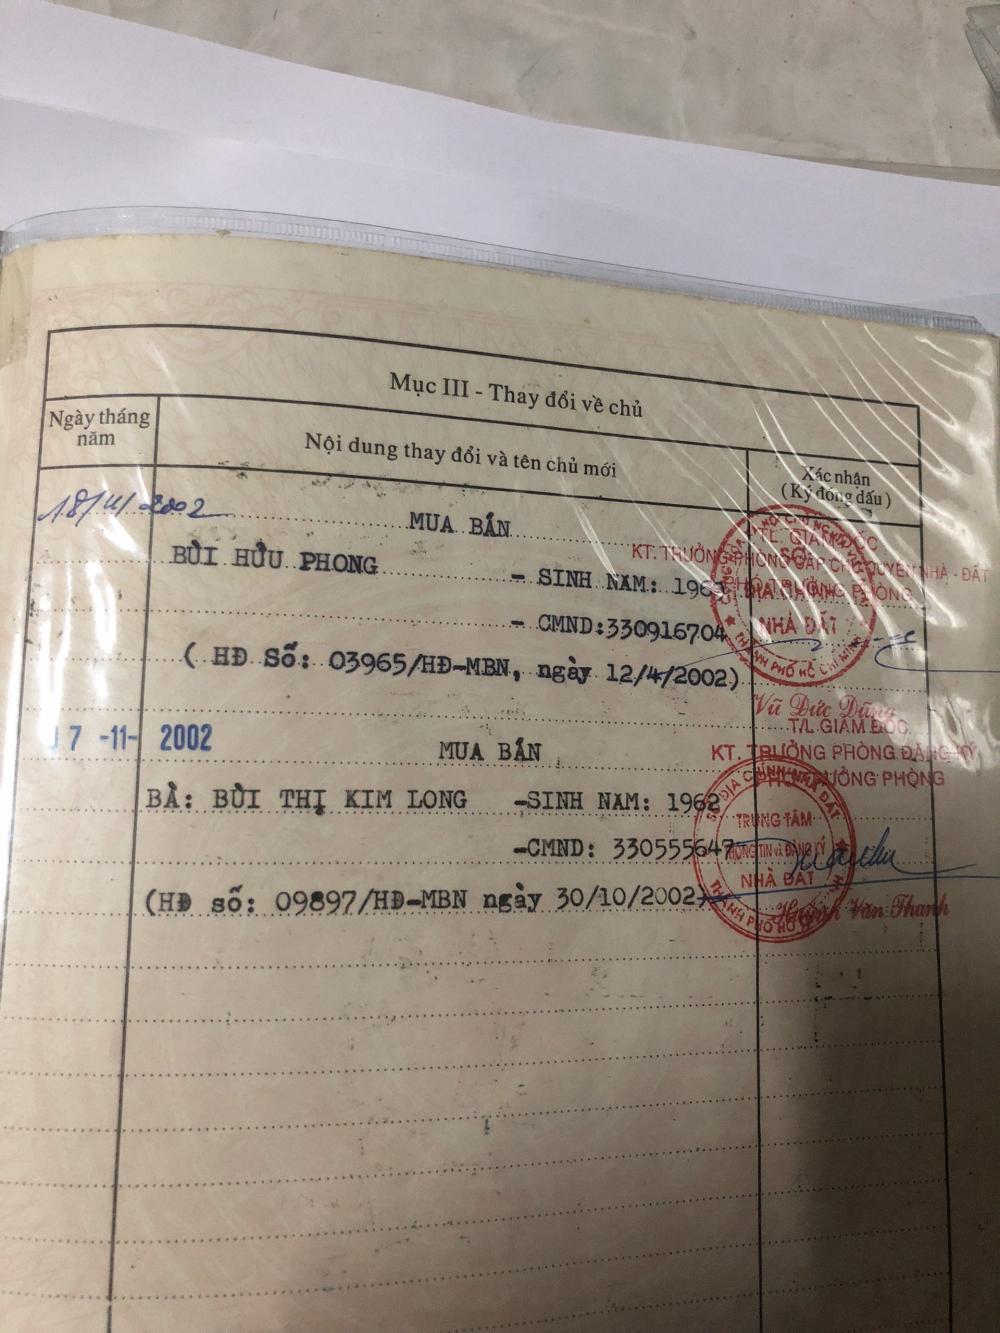 Mục III - Thay đổi về chủ
Ngày tháng năm
Nội dung thay đổi và tên chủ mới
Xác nhận
(Ký đóng dấu)
2002
MUA BÁN
TL. GIÁM ĐỐC
BÙI HỮU PHONG
- SINH NĂM: 196
KT. TRƯỞNG PHÒNG CẤP CHỦ QUYỀN NHÀ - ĐẤT
PHÓ TRƯỞNG PHÒNG
- CMND:330916704
NHÀ ĐẤT
THÀNH PHỐ HỒ CHÍ MINH
( HĐ Số: 03965/HĐ-MBN, ngày 12/4/2002)
Vũ Đức Dũng
T/L GIÁM ĐỐC
7 -11- 2002
MUA BÁN
KT. TRƯỞNG PHÒNG ĐĂNG KÝ
PHÓ TRƯỞNG PHÒNG
BÀ: BÙI THỊ KIM LONG
-SINH NĂM: 1962
SỞ ĐỊA CHÍNH NHÀ ĐẤT
TRUNG TÂM
THÔNG TIN VÀ ĐĂNG KÝ
NHÀ ĐẤT
-CMND: 330555647
(HĐ số: 09897/HĐ-MBN ngày 30/10/2002)
Huỳnh Văn Thanh